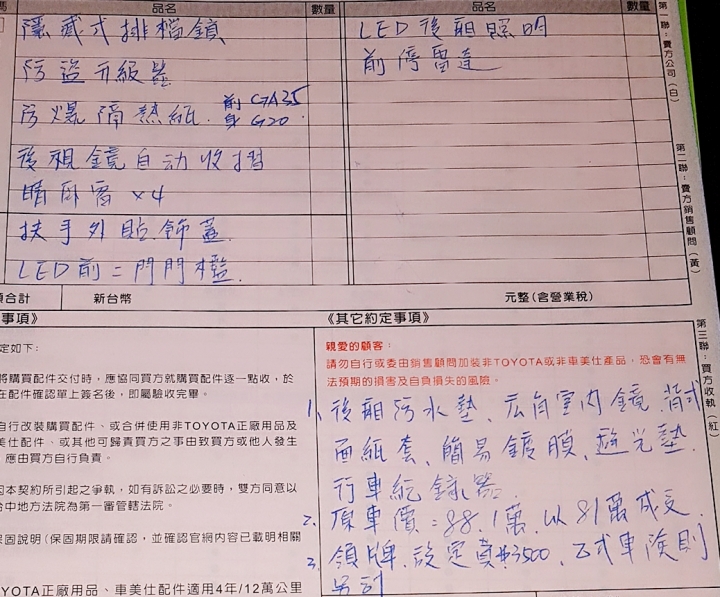 品名 數量 品名 數量
隱藏式排檔鎖 LED後廂照明
防盜升級器 前停雷達
防爆隔熱紙 前GA35
身G20
後視鏡自动收摺
晴雨窗 x4
扶手外貼飾蓋
LED前二門門檻
合計 新台幣 元整(含營業稅)
事項》 《其它約定事項》
定如下:
將購買配件交付時,應協同買方就購買配件逐一點收,於
在配件確認單上簽名後,即屬驗收完畢。
自行改裝購買配件、或合併使用非TOYOTA正廠用品及
美仕配件、或其他可歸責買方之事由致買方或他人發生
應由買方自行負責。
因本契約所引起之爭執,如有訴訟之必要時,雙方同意以
台中地方法院為第一審管轄法院。
保固說明(保固期限請確認,並確認官網內容已載明相關
YOTA正廠用品、車美仕配件適用4年/12萬公里
親愛的顧客:
請勿自行或委由銷售顧問加裝非TOYOTA或非車美仕產品,恐會有無
法預期的損害及自負損失的風險。
1、後廂污水墊、広角室內鏡、背式
面紙套、簡易鍍膜、遮光墊
行車紀錄器
2、原車價:88.1萬,以81萬成交
3、領牌、設定費$3500、乙式車險則
另計
第一聯:貴方公司(白)
第二聯:貴方銷售顧問(黃)
第三聯:買方收執(紅)